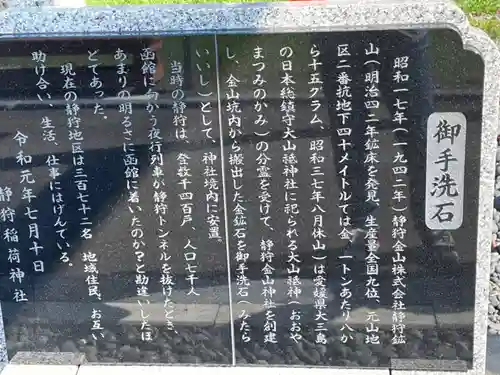 御手洗石
昭和一七年(一九四二年)静狩金山株式会社静狩鉱
山(明治四二年鉱床を発見、生産量全国九位、元山地
区二番坑地下四十メイトルでは金 一トンあたり八か
ら十五グラム、昭和三七年八月休山)は愛媛県大三島
の日本総鎮守大山祇神社に祀られる大山祇神(おおや
まつみのかみ)の分霊を受けて、静狩金山神社を創建
し、金山坑内から搬出した金鉱石を御手洗石(みたら
いいし)として、神社境内に安置。
当時の静狩は、登数千四百戸、人口七千人
函館に向かう夜行列車が静狩トンネルを抜けたとき、
あまりの明るさに函館に着いたのか?と勘違いしたほ
どてあった。
現在の静狩地区は三百七十二名 地域住民、お互い
助け合い、生活、仕事にはげんでいる。
令和元年七月十日
静狩稲荷神社